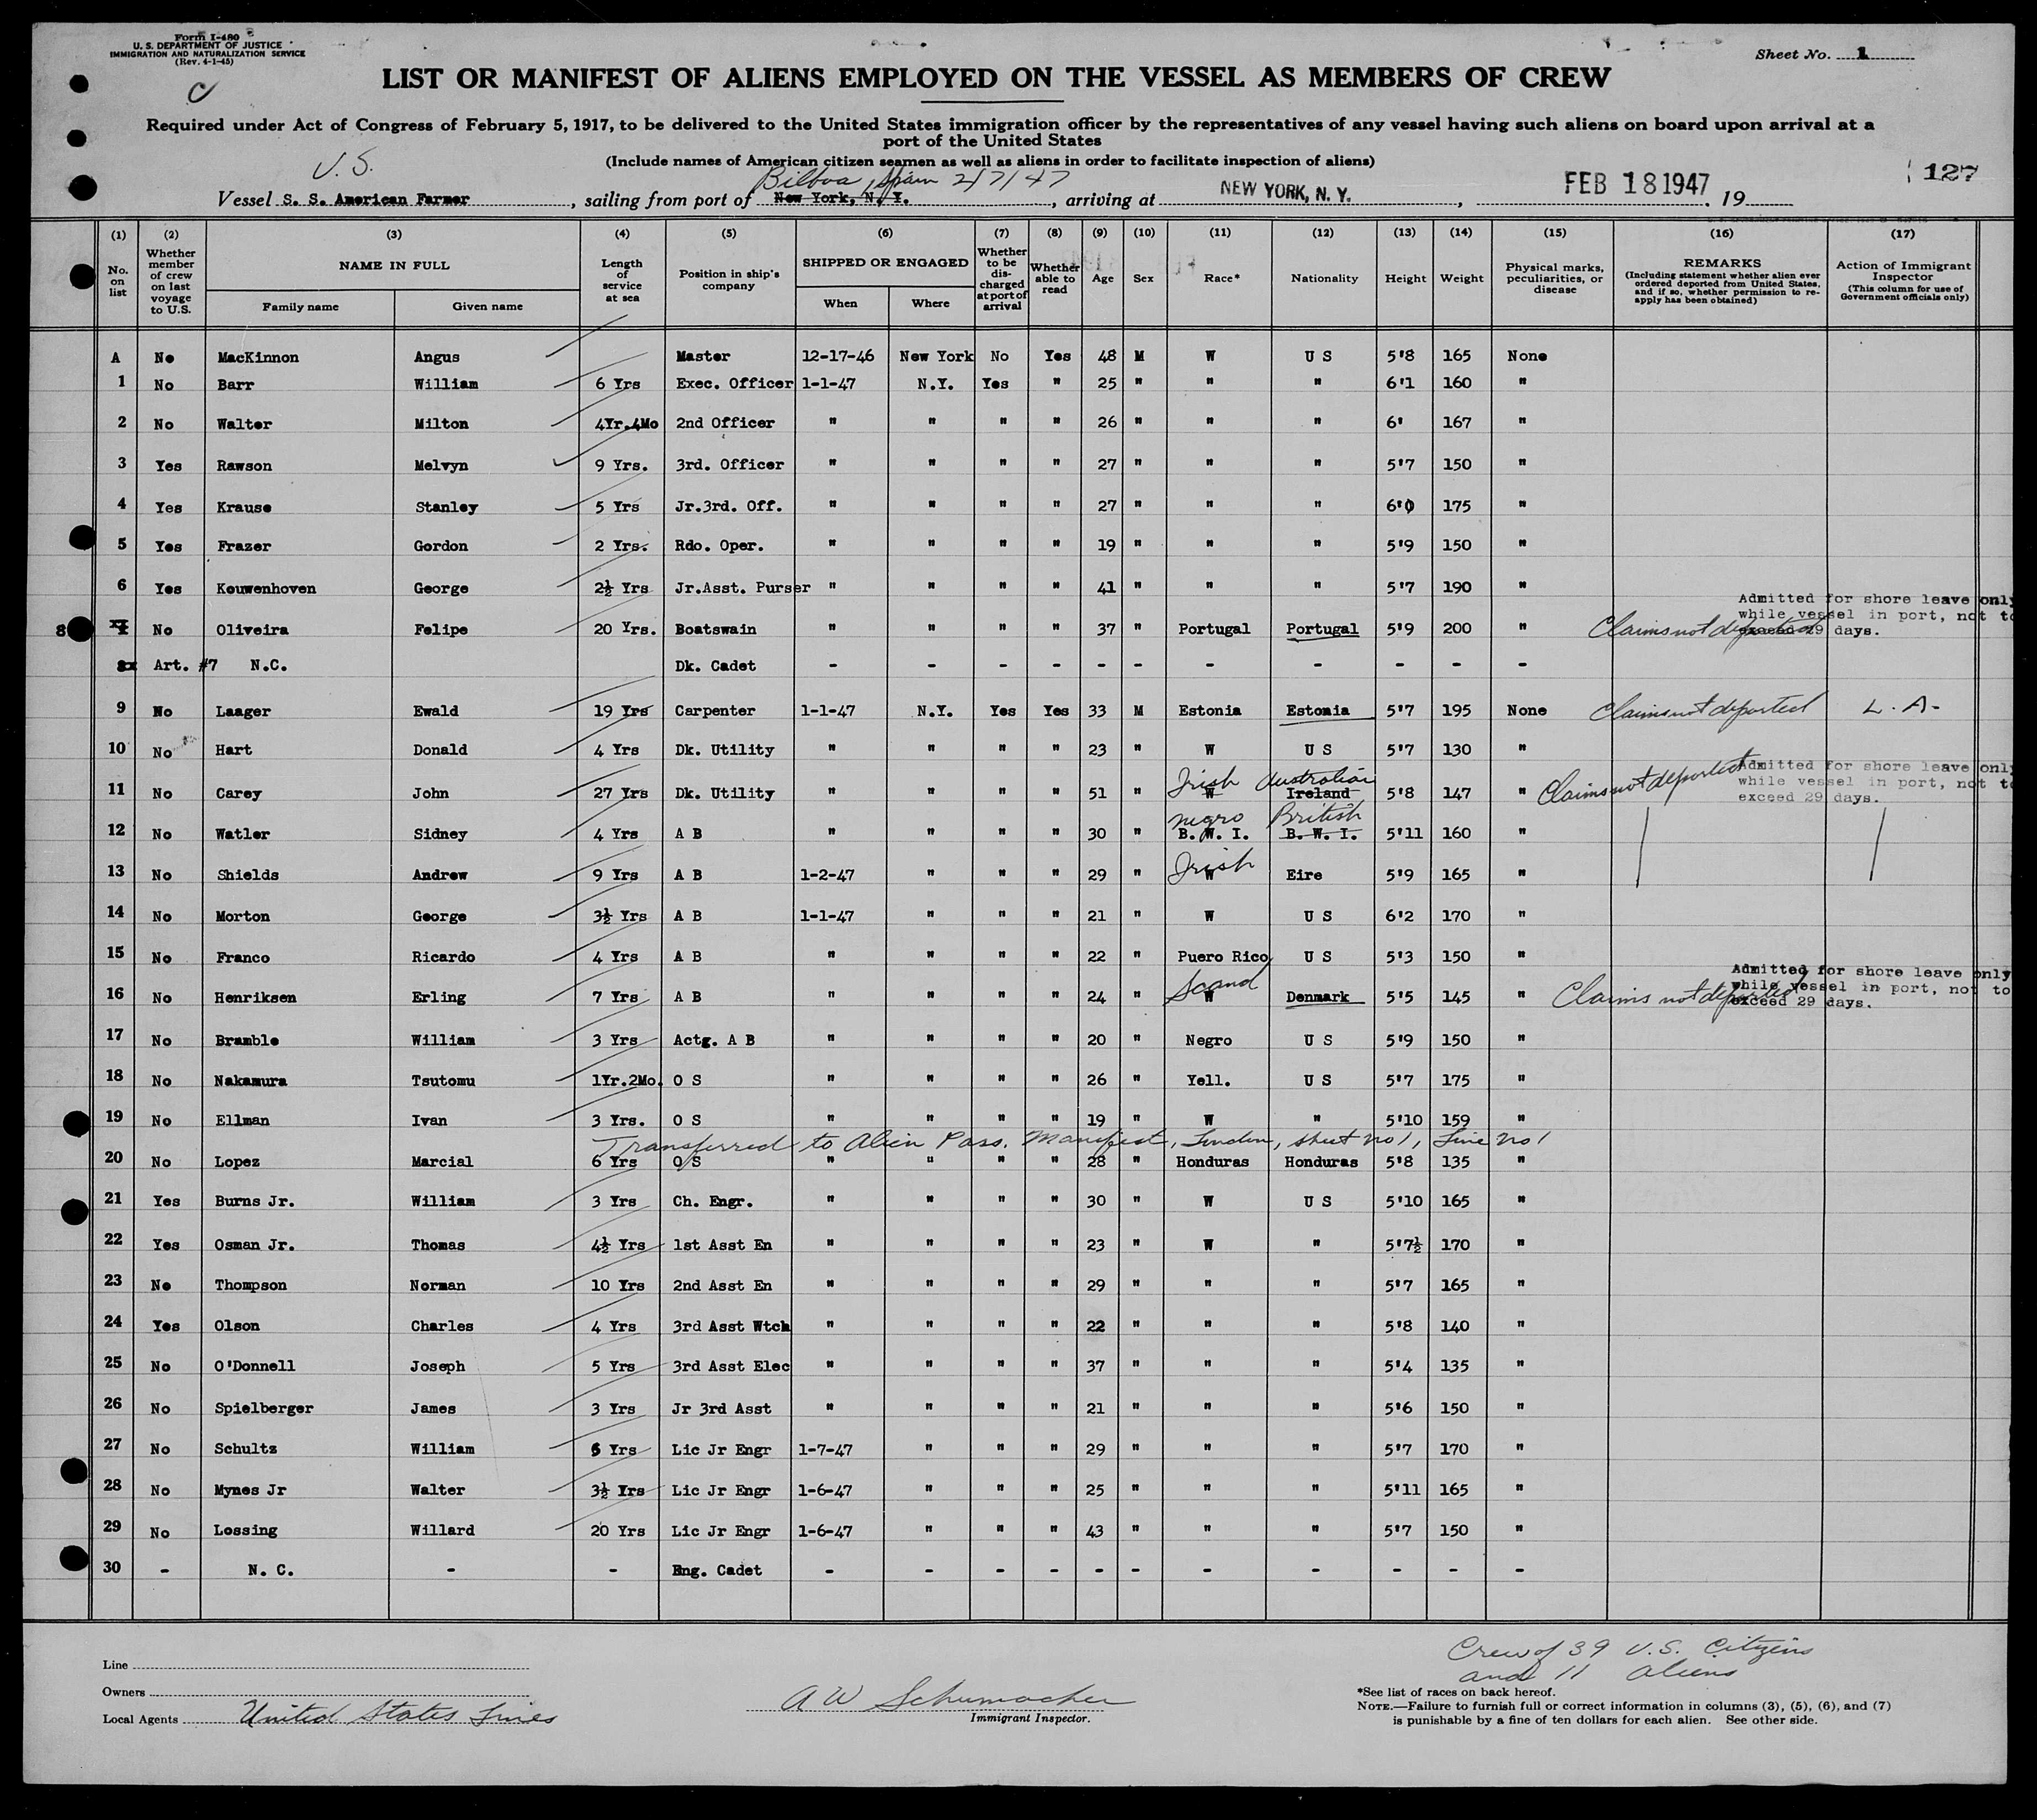 Form I-480
U. S. DEPARTMENT OF JUSTICE
IMMIGRATION AND NATURALIZATION SERVICE
(Rev. 4-1-45)
Sheet No. 1
C
LIST OR MANIFEST OF ALIENS EMPLOYED ON THE VESSEL AS MEMBERS OF CREW
Required under Act of Congress of February 5, 1917, to be delivered to the United States immigration officer by the representatives of any vessel having such aliens on board upon arrival at a
port of the United States
(Include names of American citizen seamen as well as aliens in order to facilitate inspection of aliens)
127
U. S.
Bilboa, Spain 2/7/47
Vessel S. S. American Farmer, sailing from port of New York, N. Y., arriving at NEW YORK, N. Y., FEB 18 1947, 19
(1) (2) (3) (4) (5) (6) (7) (8) (9) (10) (11) (12) (13) (14) (15) (16) (17)
No. on list
Whether member of crew on last voyage to U.S.
NAME IN FULL
Family name Given name
Length of service at sea
Position in ship's company
SHIPPED OR ENGAGED
When Where
Whether to be discharged at port of arrival
Whether able to read
Age
Sex
Race*
Nationality
Height
Weight
Physical marks, peculiarities, or disease
REMARKS
(Including statement whether alien ever ordered deported from United States, and if so, whether permission to re-apply has been obtained)
Action of Immigrant Inspector
(This column for use of Government officials only)
A No MacKinnon Angus Master 12-17-46 New York No Yes 48 M W U S 5'8 165 None
1 No Barr William 6 Yrs Exec. Officer 1-1-47 N.Y. Yes " 25 " " " 6'1 160 "
2 No Walter Milton 4Yr.4Mo 2nd Officer " " " " 26 " " " 6' 167 "
3 Yes Rawson Melvyn 9 Yrs. 3rd. Officer " " " " 27 " " " 5'7 150 "
4 Yes Krause Stanley 5 Yrs Jr.3rd. Off. " " " " 27 " " " 6'0 175 "
5 Yes Frazer Gordon 2 Yrs. Rdo. Oper. " " " " 19 " " " 5'9 150 "
6 Yes Kouwenhoven George 2½ Yrs Jr.Asst. Purser " " " " 41 " " " 5'7 190 "
8 No Oliveira Felipe 20 Yrs. Boatswain " " " " 37 " Portugal Portugal 5'9 200 " Claims not deported Admitted for shore leave only while vessel in port, not to exceed 29 days.
8x Art. #7 N.C. Dk. Cadet - - - - - - - - - - -
9 No Laager Ewald 19 Yrs Carpenter 1-1-47 N.Y. Yes Yes 33 M Estonia Estonia 5'7 195 None Claims not deported L. A.
10 No Hart Donald 4 Yrs Dk. Utility " " " " 23 " W U S 5'7 130 "
11 No Carey John 27 Yrs Dk. Utility " " " " 51 " W Irish Ireland Australian 5'8 147 " Claims not deported Admitted for shore leave only while vessel in port, not to exceed 29 days.
12 No Watler Sidney 4 Yrs A B " " " " 30 " B. W. I. negro B. W. I. British 5'11 160 "
13 No Shields Andrew 9 Yrs A B 1-2-47 " " " 29 " W Irish Eire 5'9 165 "
14 No Morton George 3½ Yrs A B 1-1-47 " " " 21 " W U S 6'2 170 "
15 No Franco Ricardo 4 Yrs A B " " " " 22 " Puero Rico U S 5'3 150 "
16 No Henriksen Erling 7 Yrs A B " " " " 24 " W Scand Denmark 5'5 145 " Claims not deported Admitted for shore leave only while vessel in port, not to exceed 29 days.
17 No Bramble William 3 Yrs Actg. A B " " " " 20 " Negro U S 5'9 150 "
18 No Nakamura Tsutomu 1Yr.2Mo. O S " " " " 26 " Yell. U S 5'7 175 "
19 No Ellman Ivan 3 Yrs. O S " " " " 19 " W " 5'10 159 "
Transferred to Alien Pass. Manifest, London, sheet no 1, Line no 1
20 No Lopez Marcial 6 Yrs O S " " " " 28 " Honduras Honduras 5'8 135 "
21 Yes Burns Jr. William 3 Yrs Ch. Engr. " " " " 30 " W U S 5'10 165 "
22 Yes Osman Jr. Thomas 4½ Yrs 1st Asst En " " " " 23 " W " 5'7½ 170 "
23 No Thompson Norman 10 Yrs 2nd Asst En " " " " 29 " " " 5'7 165 "
24 Yes Olson Charles 4 Yrs 3rd Asst Wtch " " " " 22 " " " 5'8 140 "
25 No O'Donnell Joseph 5 Yrs 3rd Asst Elec " " " " 37 " " " 5'4 135 "
26 No Spielberger James 3 Yrs Jr 3rd Asst " " " " 21 " " " 5'6 150 "
27 No Schultz William 6 Yrs Lic Jr Engr 1-7-47 " " " 29 " " " 5'7 170 "
28 No Mynes Jr Walter 3½ Yrs Lic Jr Engr 1-6-47 " " " 25 " " " 5'11 165 "
29 No Lossing Willard 20 Yrs Lic Jr Engr 1-6-47 " " " 43 " " " 5'7 150 "
30 - N. C. - - Eng. Cadet - - - - - - - - - - -
Crew of 39 U.S. Citizens
and 11 aliens
Line
Owners
Local Agents United States Lines
A W Schumacher
Immigrant Inspector.
*See list of races on back hereof.
NOTE.—Failure to furnish full or correct information in columns (3), (5), (6), and (7)
is punishable by a fine of ten dollars for each alien. See other side.